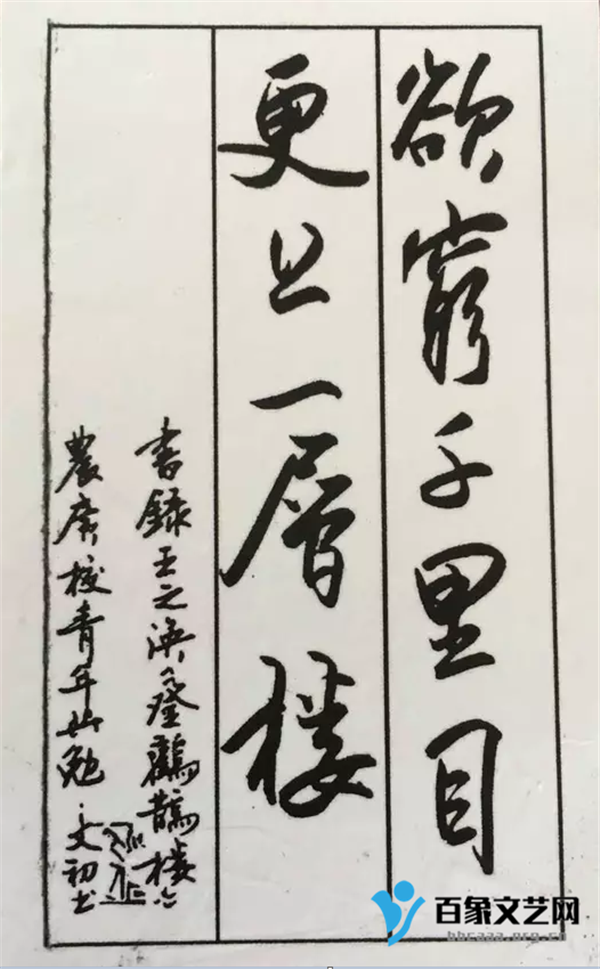 欲穷千里目
更上一层楼
书录王之涣登鹳鹊楼
农广校青年共勉
文初书
百象文艺网
bbcaaa.org.cn